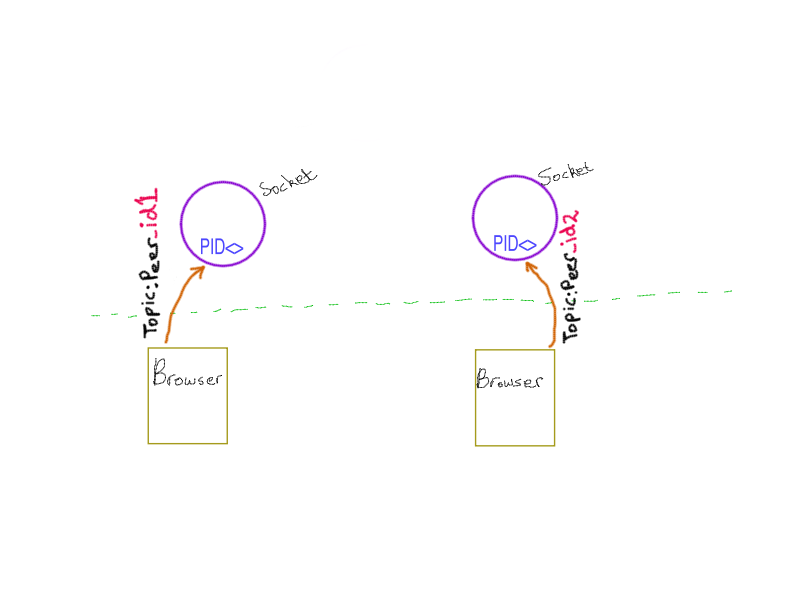 Socket
PID<>
Topic:Peer_id1
Browser
Socket
PID<>
Topic:Peer_id2
Browser